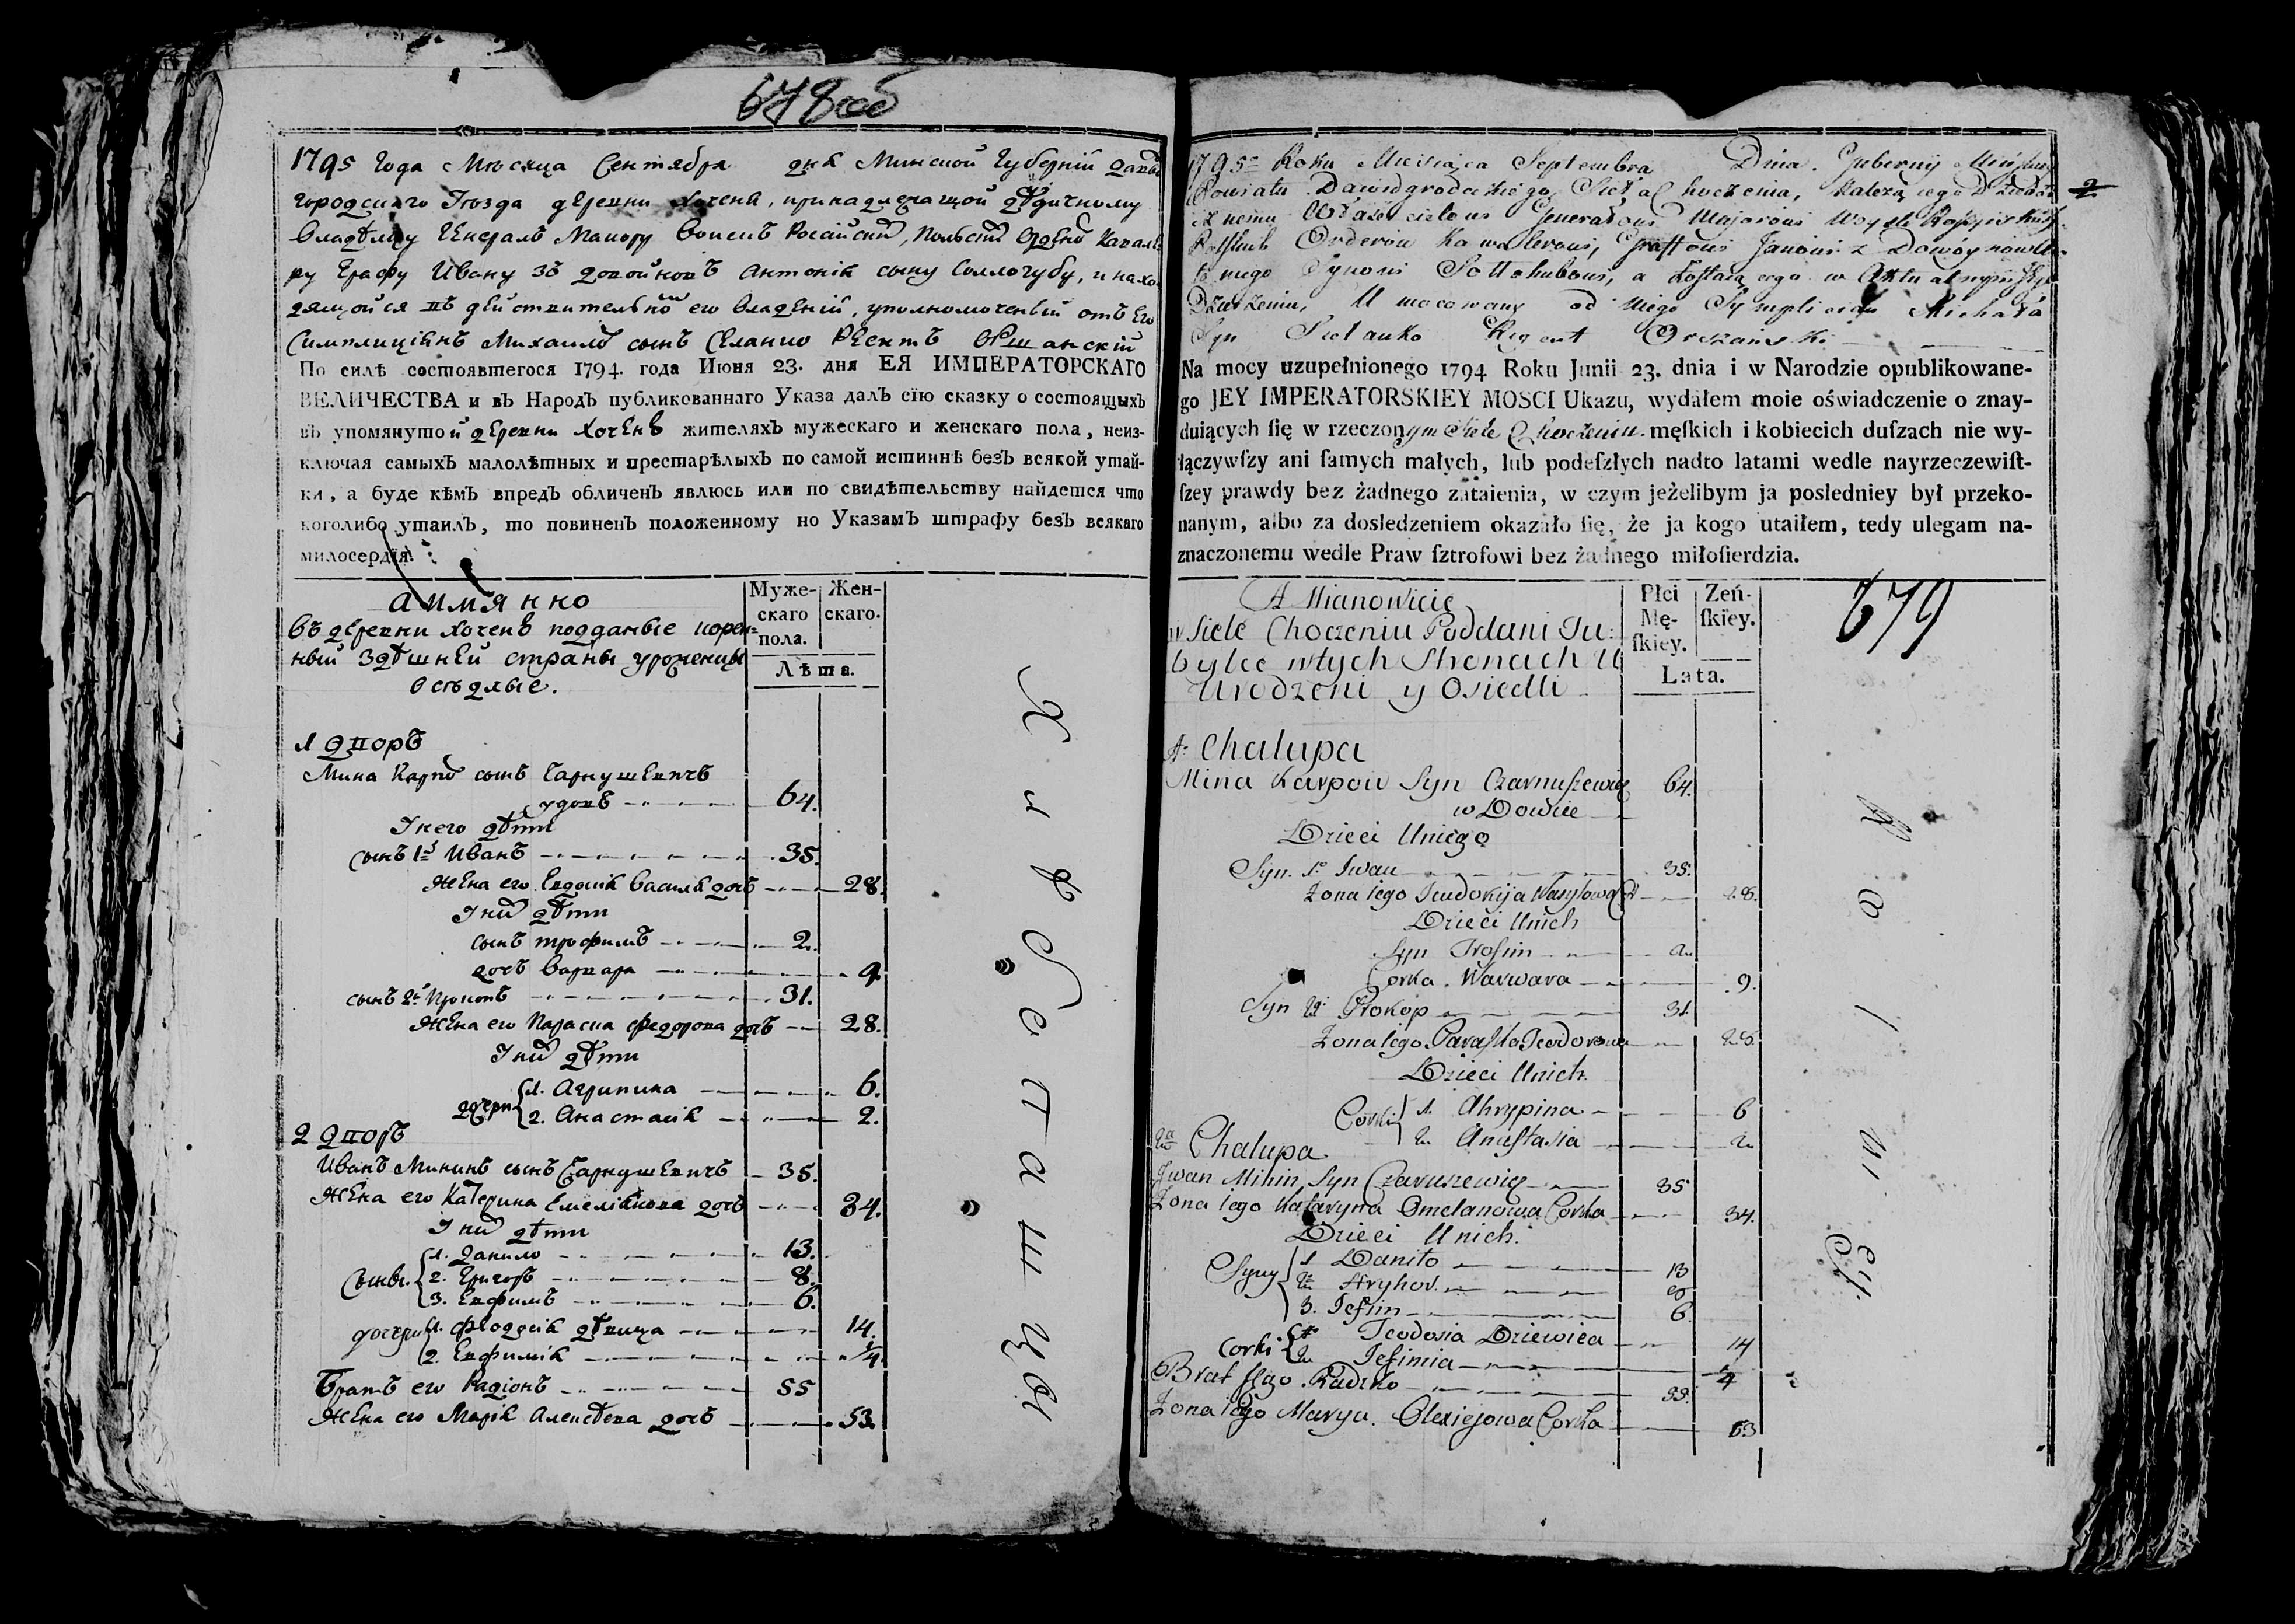 678 об
1795 Года Мѣсяца Сентября дня Минской Губернїи Давидъ
городскаго Уѣзда деревни Хоченя, принадлежащой дѣдичному
владѣлцу Генералъ Маиору Воискъ Россійскихъ, Польскихъ Орденовъ Кавале
ру Графу Ивану зъ Довойновъ Антонія сыну Соллогубу, и нахо
дящойся въ дѣйствительномъ его владѣніи, уполномоченный отъ Его
Симплиціянъ Михаила сынъ Селянко Реентъ Оршанскій
По силѣ состоявшегося 1794. года Июня 23. дня ЕЯ ИМПЕРАТОРСКАГО
ВЕЛИЧЕСТВА и въ Народъ публикованнаго Указа далъ сїю сказку о состоящыхъ
въ упомянутой деревни Хоченѣ жителяхъ мужескаго и женскаго пола, неиз-
ключая самыхъ малолѣтных и престарѣлыхъ по самой истиннѣ безъ всякой утай-
ки, а буде кѣмъ впредь обличенъ явлюсь или по свидѣтельству найдется что
коголибо утаилъ, то повиненъ положенному по Указамъ штрафу безъ всякаго
милосердїя.
Муже-
скаго
пола.
Жен-
скаго.
Лѣта.
а имянно
въ деревни Хоченѣ подданые корен=
ный здѣшней страны уроженцы
осѣдлые.
1 Дворъ
Мина Карповъ сынъ Чарнушевичъ
удовъ 64.
У него дѣти
сынъ 1й Иванъ 35.
жена его Евдокія Василя дочь 28.
У нихъ дѣти
сынъ Трофимъ 2.
дочь Варвара 9.
сынъ 2й Прокопъ 31.
жена его Параска Федорова дочь 28.
У нихъ дѣти
дочери 1. Агрипина 6.
2. Анастасія 2.
2 Дворъ
Иванъ Мининъ сынъ Чарнушевичъ 35.
жена его Катерина Емеліянова дочь 34.
У нихъ дѣти
сынвы. 1. Данило 13.
2. Григоръ 8.
3. Евфимъ 6.
дочери 1. Феодосія дѣвица 14.
2. Евфимія 4.
Братъ его Радіонъ 55
жена его Марія Алексѣева дочь 53.
Х и ѳ о б о т а ш ц ы
1795o Roku Miesiąca Septembra Dnia. Gubernij Mińskiey
Powiatu Dawidgrodzkiego Sieła Choczenia, należącego Dziedzi
cznemu Właścicielowi Generałowi Majorowi Woysk Rossyiskich
Polskich Orderów Kawalerowi, Graffowi Janowi z Dowoynow An
toniego Synowi Sołłohubowi, a zostaiącego w Aktualnym Jego
Dzierżeniu, Umocowany od Niego Symplician Michała
Syn Sielanko Regent Orszański
Na mocy uzupełnionego 1794 Roku Junii 23. dnia i w Narodzie opublikowane-
go JEY IMPERATORSKIEY MOSCI Ukazu, wydałem moie oświadczenie o znay-
duiących ſię w rzeczonym Siele Choczeniu męſkich i kobiecich duſzach nie wy-
łączywſzy ani ſamych małych, lub podeſzłych nadto latami wedle nayrzeczewiſt-
ſzey prawdy bez żadnego zataienia, w czym jeżelibym ja posledniey był przeko-
nanym, albo za dosledzeniem okazało ſię, że ja kogo utaiłem, tedy ulegam na-
znaczonemu wedle Praw ſztrofowi bez żadnego miłoſierdzia.
Płci
Mę-
ſkiey.
Zeń-
ſkiey.
Lata.
679
A Mianowicie
w Siele Choczeniu Poddani Tu:
bylce w tych Stronach U
Urodzeni y Osiedli
1a Chalupa
Mina Karpow Syn Czarnuszewicz 64.
w Dowiec
Dzieci Uniego
Syn. 1o Iwan 35.
Zona iego Jeudokija Wasylowa C 28.
Dzieci Unich
Syn Trofim 2.
Corka. Warwara 9.
Syn 2i Prokop 31
Zona iego Paraska Teodorowa 28.
Dzieci Unich.
Corki 1. Ahrypina 6
2. Anastasia 2.
2a Chalupa
Iwan Minin Syn Czarnuszewicz 35
Zona iego Kataryna Omelanowa Corka 34.
Dzieci Unich.
Syny 1 Danilo 13
2. Hryhor. 8
3. Jefim 6.
Corki 1. Teodosia Dziewica 14
2. Jefimia 4
Brat Jego Radzko 55.
Zona iego Marya. Olexiejowa Corka 53